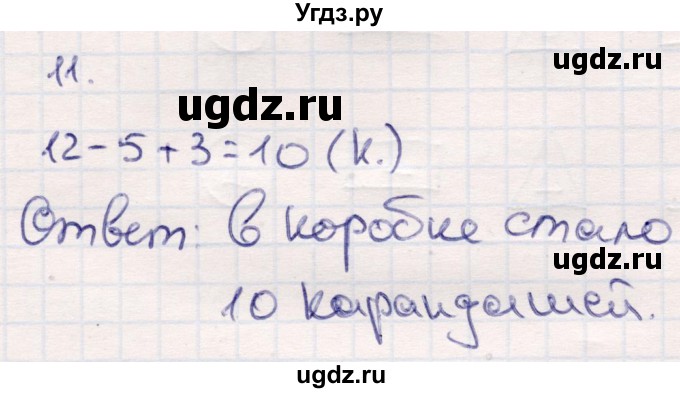 Угдз.ру
11.
ugdz.ru
ugdz.ru
12-5+3=10 (к.)
Ответ: в коробке стало
10 карандашей.
ugdz.ru
ugdz.ru